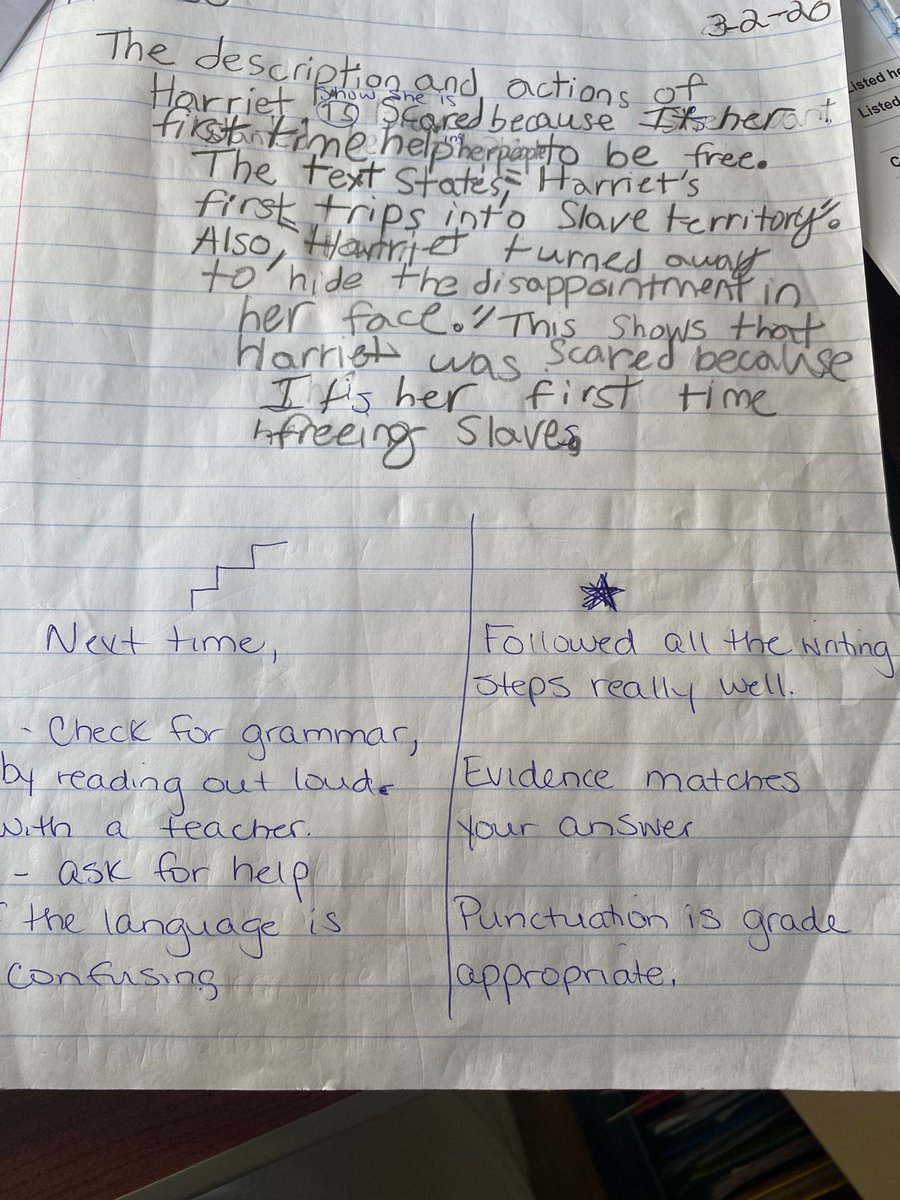 3-2-20
The description and actions of
show she is
Harriet is scared because Its her
first time helping her people to be free.
The text States, "Harriet's
first trips into Slave territory".
Also, Harriet turned away
to hide the disappointment in
her face." This shows that
Harriet was scared because
It is her first time
freeing Slaves
Next time,
- Check for grammar,
by reading out loud
with a teacher.
- ask for help
the language is
confusing
Followed all the writing
steps really well.
Evidence matches
your answer
Punctuation is grade
appropriate.
isted he
Listed